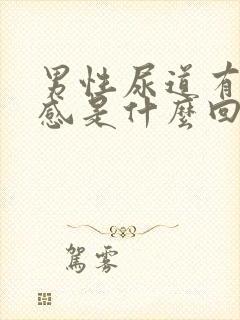 男性尿道有
感是什麼回
駕霧